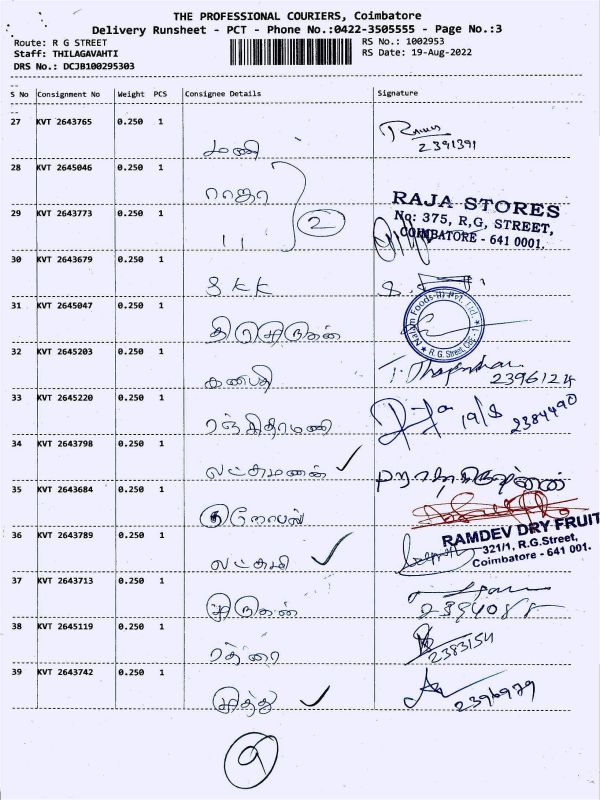 THE PROFESSIONAL COURIERS, Coimbatore
Delivery Runsheet - PCT - Phone No.:0422-3505555 - Page No.:3
Route: R G STREET
Staff: THILAGAVAHTI
DRS No.: DCJB100295303
RS No.: 1002953
RS Date: 19-Aug-2022
S No Consignment No Weight PCS Consignee Details Signature
27 KVT 2643765 0.250 1 மணி
2391391
28 KVT 2645046 0.250 1 ராஜா
29 KVT 2643773 0.250 1 11
2
RAJA STORES
No: 375, R,G, STREET,
COIMBATORE - 641 0001.
30 KVT 2643679 0.250 1 SKK
31 KVT 2645047 0.250 1 திருமுருகன்
R.G. Street, CBE - 1
32 KVT 2645203 0.250 1 கணபதி
2396124
33 KVT 2645220 0.250 1 ரஞ்சிதாமணி
19/8 2384490
34 KVT 2643798 0.250 1 லட்சுமணன்
35 KVT 2643684 0.250 1
36 KVT 2643789 0.250 1 லட்சுமி
RAMDEV DRY FRUIT
321/1, R.G.Street,
Coimbatore - 641 001.
37 KVT 2643713 0.250 1 முருகன்
38 KVT 2645119 0.250 1
2383154
39 KVT 2643742 0.250 1 முத்து
2396979
9